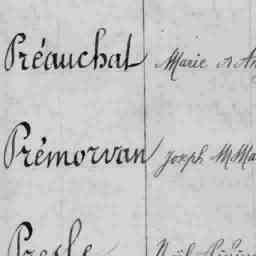 Préauchat Marie
Prémorvan Joseph M Ma
Presle Noël